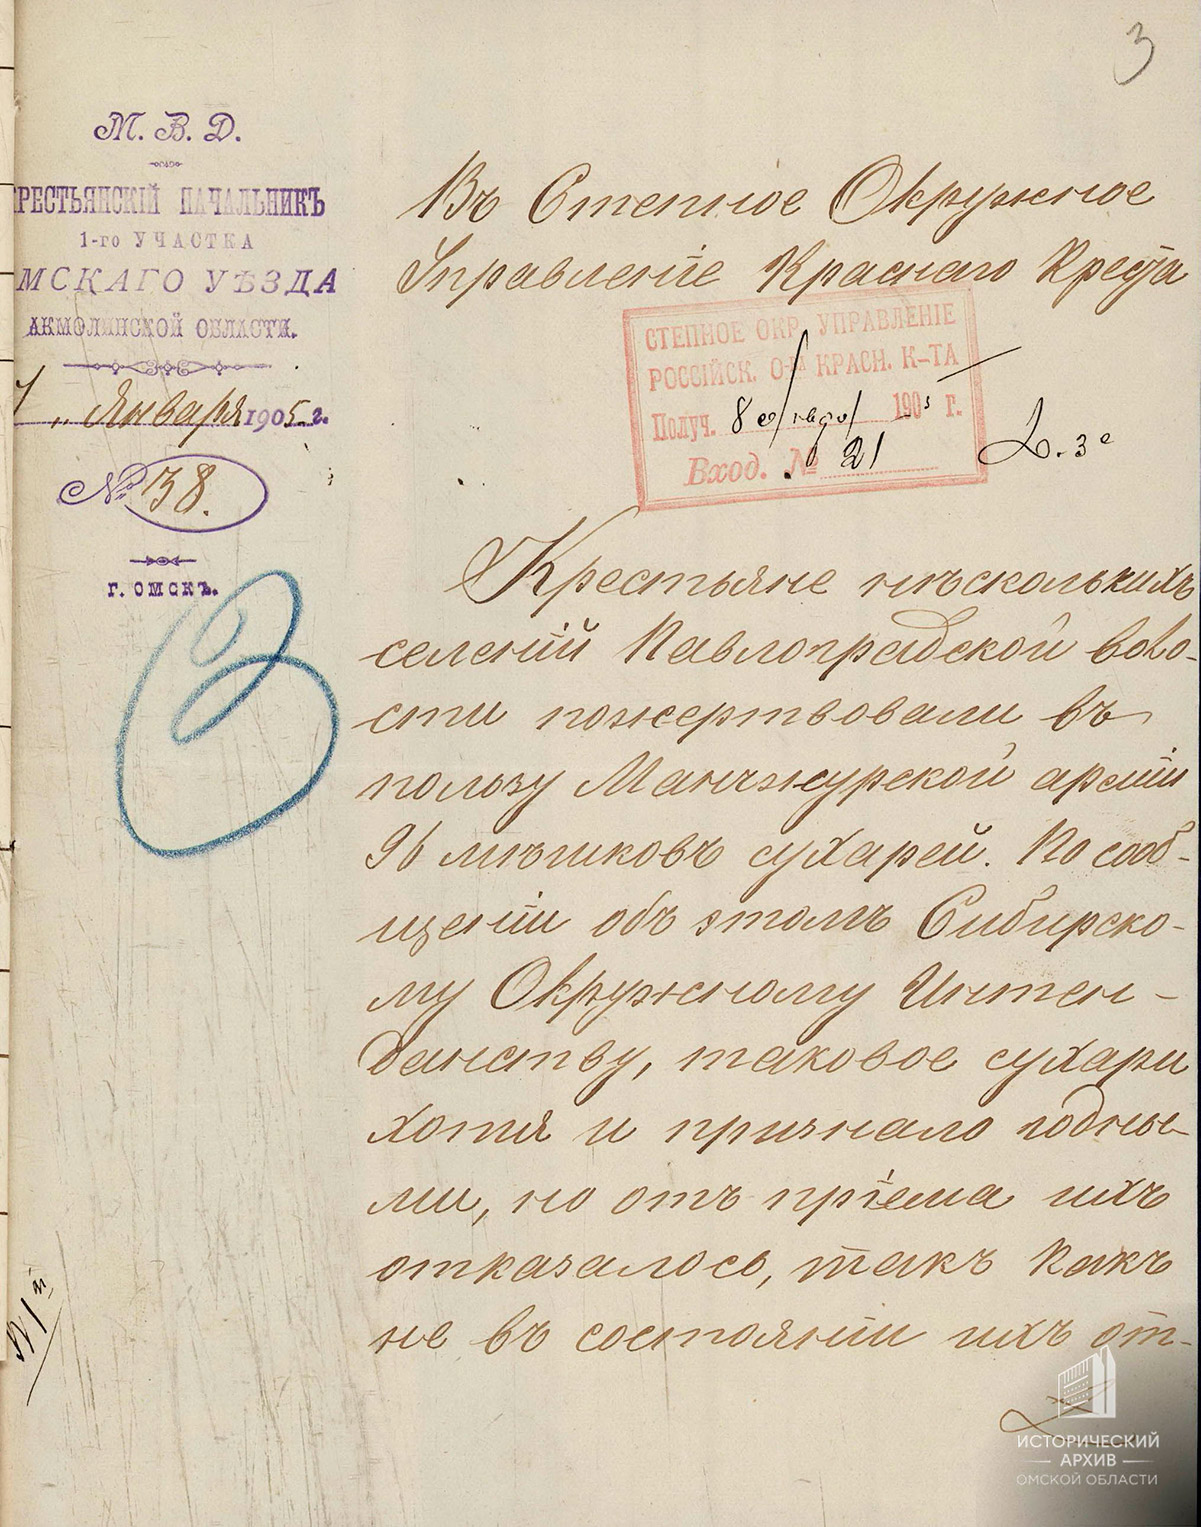 3
М. В. Д.
РЕСТЬЯНСКІЙ НАЧАЛЬНИКЪ
1-го УЧАСТКА
МСКАГО УѢЗДА
АКМОЛИНСКОЙ ОБЛАСТИ.
Января 1905 г.
№ 38.
Г. ОМСКЪ.
Въ Степное Окружное
Управленіе Краснаго Креста
СТЕПНОЕ ОКР. УПРАВЛЕНІЕ
РОССІЙСК. О-ва КРАСН. К-ТА
Получ. 8 января 1905 г.
Вход. № 21
Крестьяне нѣсколькихъ
селеній Павлоградской воло-
сти пожертвовали въ
пользу Манчжурской арміи
96 мѣшковъ сухарей. По сооб-
щеніи объ этомъ Сибирско-
му Окружному Интен-
данству, таковое сухари
хотя и признало годны-
ми, но отъ пріема ихъ
отказалось, такъ какъ
не въ состояніи ихъ от-
ИСТОРИЧЕСКИЙ
АРХИВ
ОМСКОЙ ОБЛАСТИ